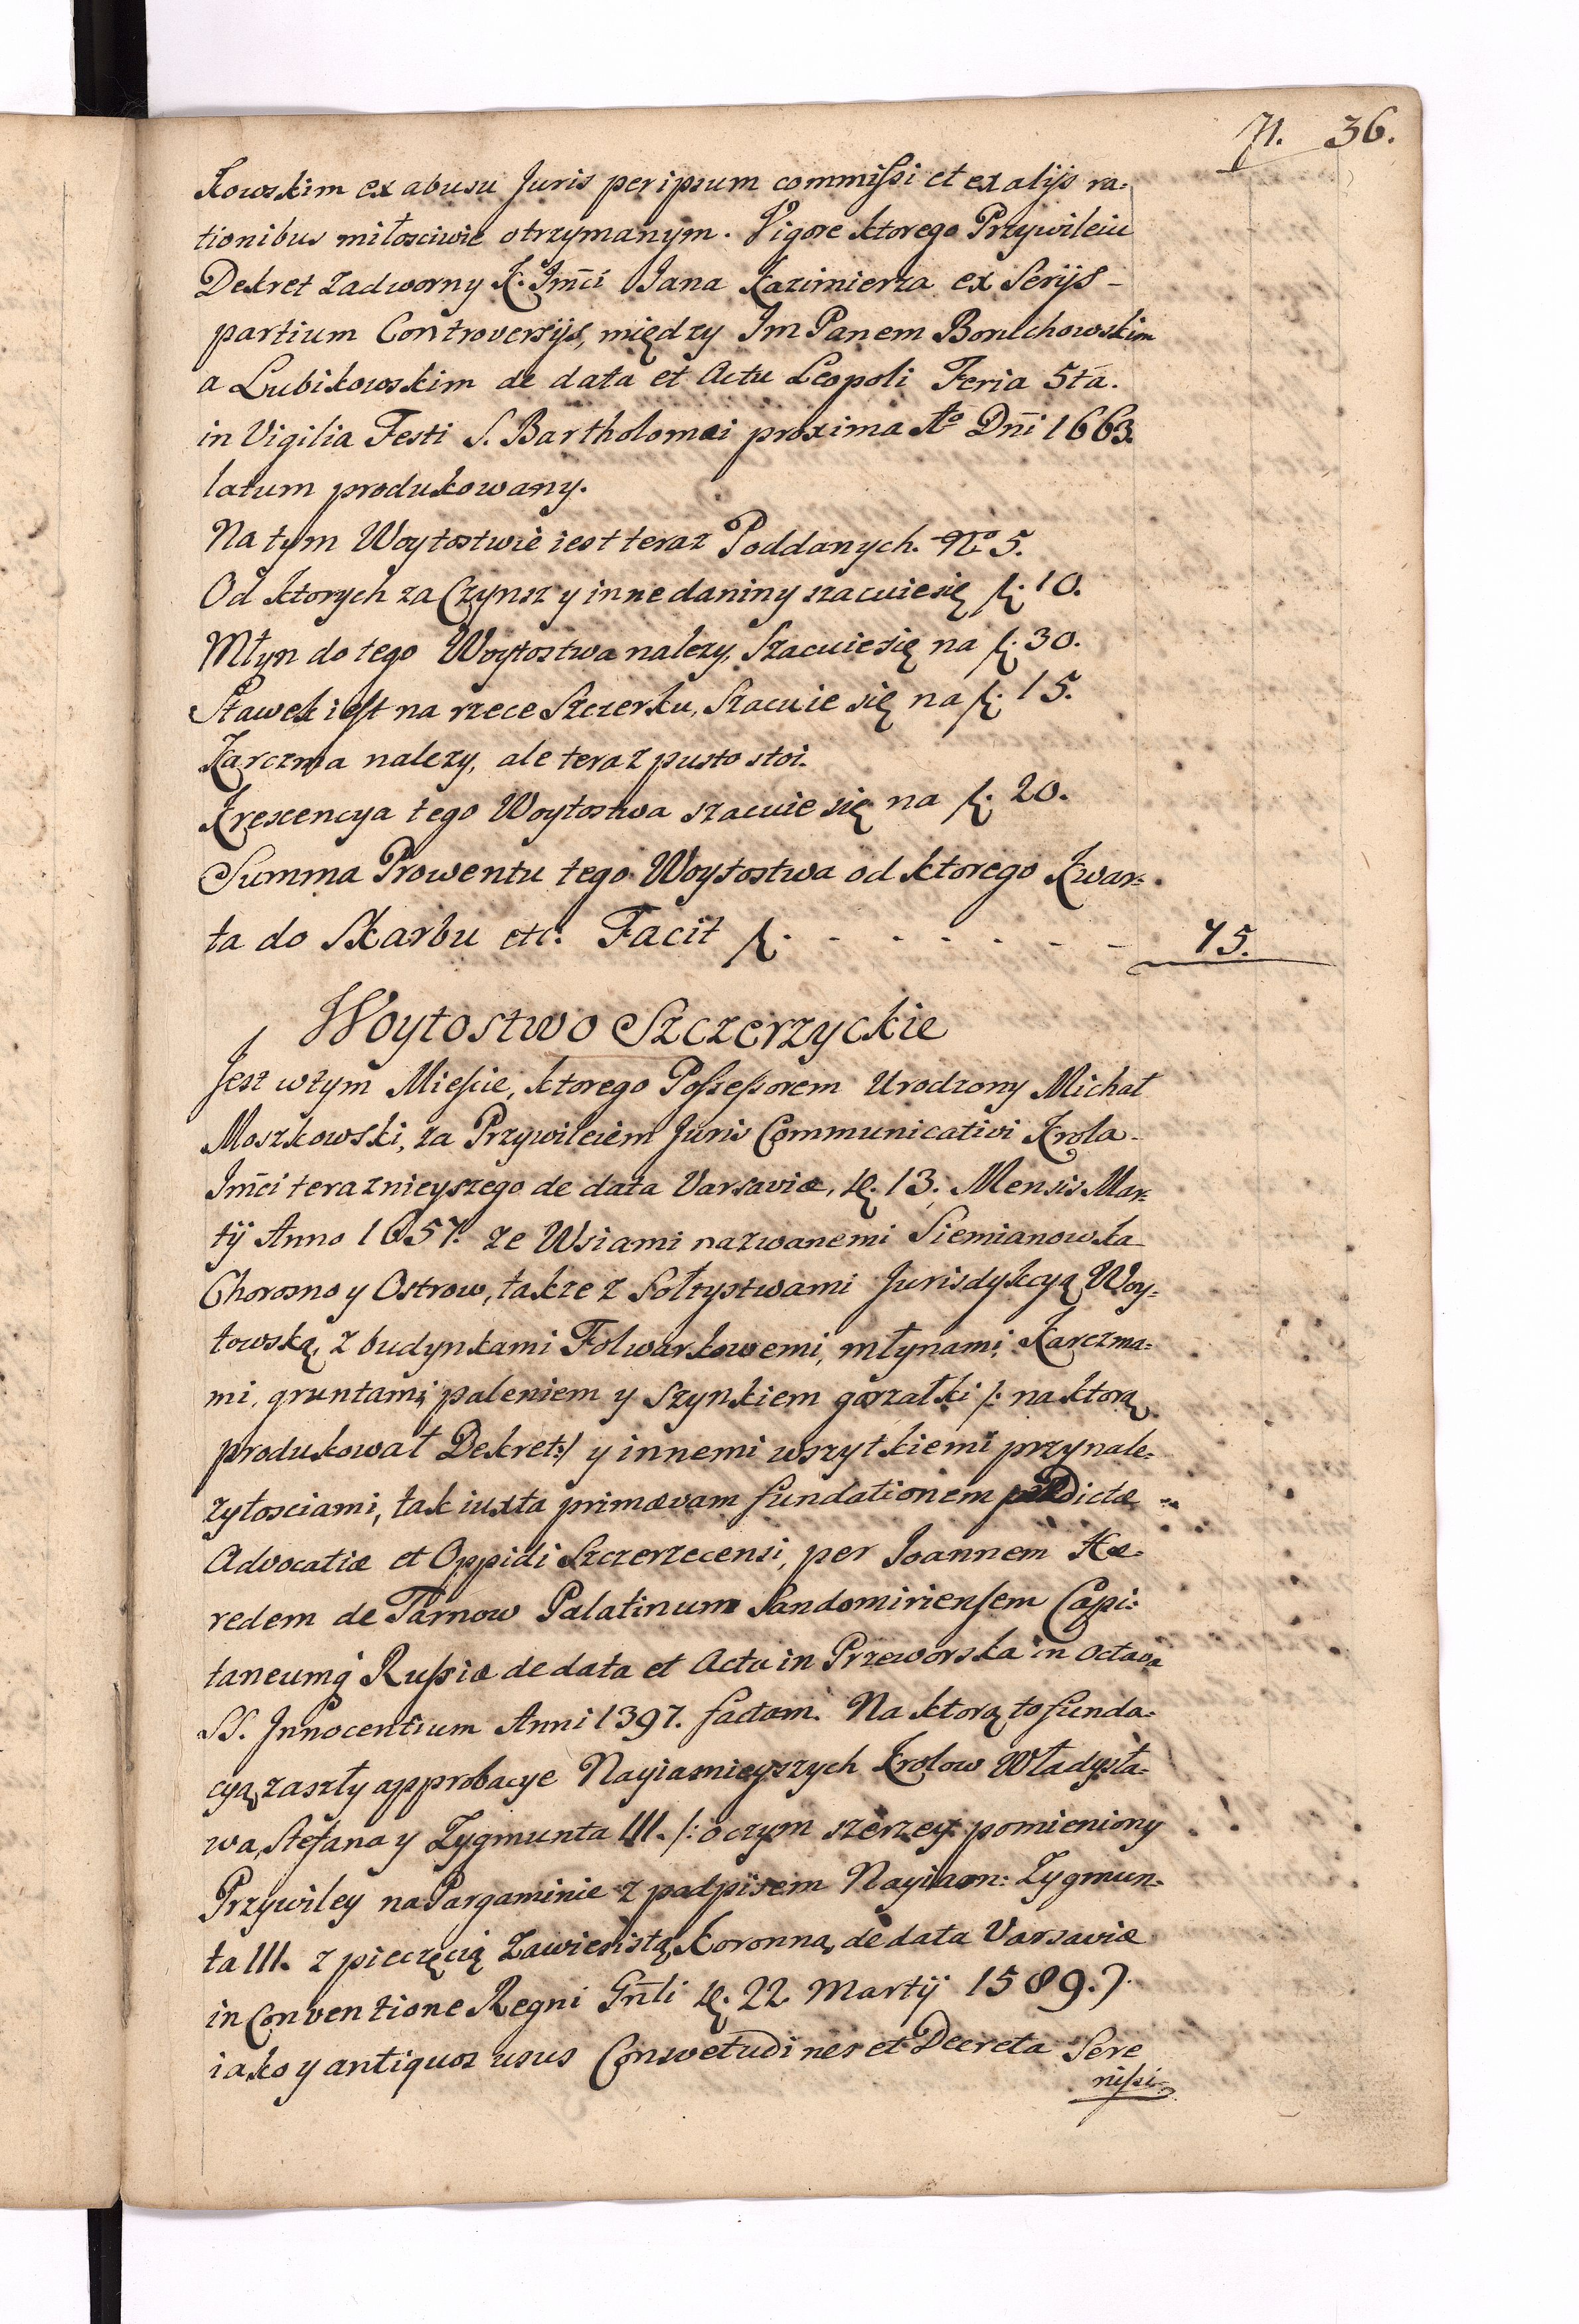 71. 36.
kowskim ex abusu Juris per ipsum commissi et ex alijs ra-
tionibus miłosciwie otrzymanym. Vigore ktorego Przywileiu
Dekret zadworny K. Jm̄ci Jana Kazimierza ex Serijs -
partium Controversijs, między Jm Panem Bonichowskim
a Lubikowskim de data et Actu Leopoli Feria 5ta.
in Vigilia Festi S. Bartholomæi proxima Ao Dn̄i 1663.
latum produkowany.
Na tym Woytostwie iest teraz Poddanych. No 5.
Od ktorych za Czynsz y inne daniny szacuie się f. 10.
Młyn do tego Woytostwa nalezy, Szacuie się na f. 30.
Stawek iest na rzece Szczerku, Szacuie się na f. 15.
Karczma nalezy, ale teraz pusto stoi.
Krescencya tego Woytostwa szacuie się na f. 20.
Summa Prowentu tego Woytostwa od ktorego Kwar=
ta do Skarbu etc. Facit f. - - - - - - - 75.
Woytostwo Szczerzyckie
Jest w tym Mieście, ktorego Possessorem Urodzony Michał
Moszkowski, za Przywileiem Juris Communicativi Krola
Jm̄ci teraznieyszego de data Varsaviæ, d. 13. Mensis Mar=
tij Anno 1657. ze Wsiami nazwanemi Siemianowka
Chorosno y Ostrow, takze z Sołtystwami Jurisdykcyą Woy=
towską, z budynkami Folwarkowemi, młynami, Karczma=
mi, gruntami, paleniem y Szynkiem gorzałki /: na ktorą
produkował Dekret:/ y innemi wszytkiemi przynale=
zytosciami, tak iuxta primævam fundationem prædictæ
Advocatiæ et Oppidi Szczerzecensi, per Joannem Hæ=
redem de Tarnow Palatinum Sandomiriensem Capi=
taneumq́ Russiæ de data et Actu in Przeworska in octava
SS. Innocentium Anni 1397. factam. Na ktorą to funda=
cyą zaszły approbacye Nayiasnieyszych Krolow Władysła=
wa, Stefana y Zygmunta III. /: o czym szerzey pomieniony
Przywiley na Pargaminie z podpisem Nayiasn: Zygmun=
ta III. z pieczęcią zawiesistą Koronną, de data Varsaviæ
in Conventione Regni Gn̄li d. 22 Martij 1589. ).
iako y antiquos usus Consvetudines et Decreta Sere
nissi=